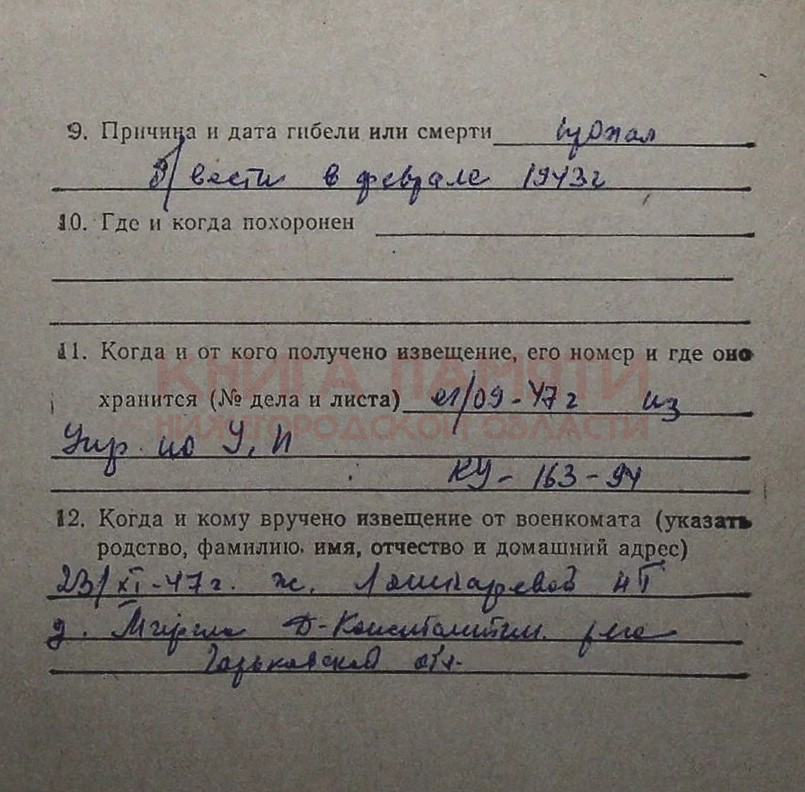 9. Причина и дата гибели или смерти пропал
б/вести в феврале 1943г
10. Где и когда похоронен
11. Когда и от кого получено извещение, его номер и где оно
КНИГА ПАМЯТИ
хранится (№ дела и листа) 21/09-47г из
НИЖЕГОРОДСКОЙ ОБЛАСТИ
Упр. по У, П
КУ - 163-94
12. Когда и кому вручено извещение от военкомата (указать
родство, фамилию, имя, отчество и домашний адрес)
23/XI-47г. ж.
д. Д-Константин. р-на
Горьковской обл.